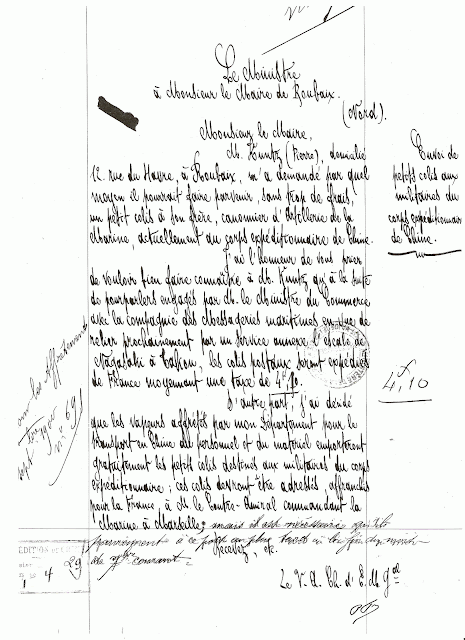 Le Ministre
à Monsieur le Maire de Roubaix.
(Nord).
Monsieur le Maire,
M. Kuntz (Pierre), domicilié
12 rue du Havre, à Roubaix, m'a demandé par quel
moyen il pourrait faire parvenir, sans trop de frais,
un petit colis à son frère, canonnier d'artillerie de la
Marine, actuellement au corps expéditionnaire de Chine.
J'ai l'honneur de vous prier
de vouloir bien faire connaître à M. Kuntz qu'à la suite
de pourparlers engagés par M. le Ministre du Commerce
avec la compagnie des Messageries maritimes en vue de
relier prochainement par un service annexe l'escale de
Nagasaki à Takou, les colis postaux seront expédiés
de France moyennant une taxe de 4f,10.
D'autre part, j'ai décidé
que les vapeurs affrétés par mon Département pour le
transport en Chine du personnel et du matériel emporteront
gratuitement les petits colis destinés aux militaires du corps
expéditionnaire ; ces colis devront être adressés, affranchis
pour la France, à M. le Contre-Amiral commandant la
Marine à Marseille, mais il est nécessaire qu'ils
parviennent à ce port au plus tard à la fin du mois
de courant.
Recevez, etc.
Le V. A. Ch. d'E. M. Gal
Envoi de
petits colis aux
militaires du
corps expéditionnaire
de Chine.
4f,10
sept
n° 691
1 4 29